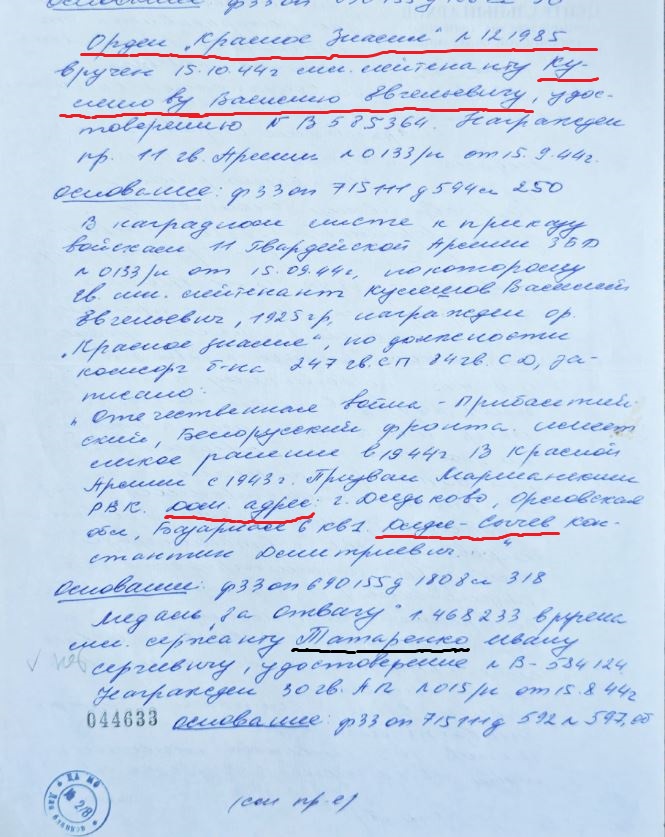 Основание: ф33 оп
Орден „Красное Знамя" №121985
вручен 15.10.44г мл. лейтенанту Ку-
лешову Василию Евгеньевичу, удос-
товерению № В 585364. Награжден
пр. 11 гв. Армии №0133/н от 15.9.44г.
основание: ф33 оп 715111 д 594 л 250
В наградном листе к приказу
войскам 11 Гвардейской Армии 3БФ
№0133/н от 15.09.44г, по которому
гв. мл. лейтенант Кулешов Василий
Евгеньевич, 1925гр, награжден ор.
„Красное знамя", по должности
комсорг б-на 247 гв.СП 84 гв. СД, за-
писано:
„Отечественная война - Прибалтий-
ский, Белорусский фронта. имеет
легкое ранение в 1944г. В Красной
Армии с 1943г. Призван
РВК. Дом. адрес: г. Дядьково, Орловская
обл, 6 кв 1. Дядя - Сычев Кон-
стантин Дмитриевич..."
Основание: ф33 оп 690155 д 1808 л 318
Медаль „За отвагу" 1.468233 вручена
мл. сержанту Татаренко Ивану
Сергеевичу, удостоверение №В-584124
Награжден 30 гв. АП №015/н от 15.8.44г
044633 основание: ф33 оп 715111 д 592 л 597, об
ЦА МО
№ 2/8
(см пр-е)